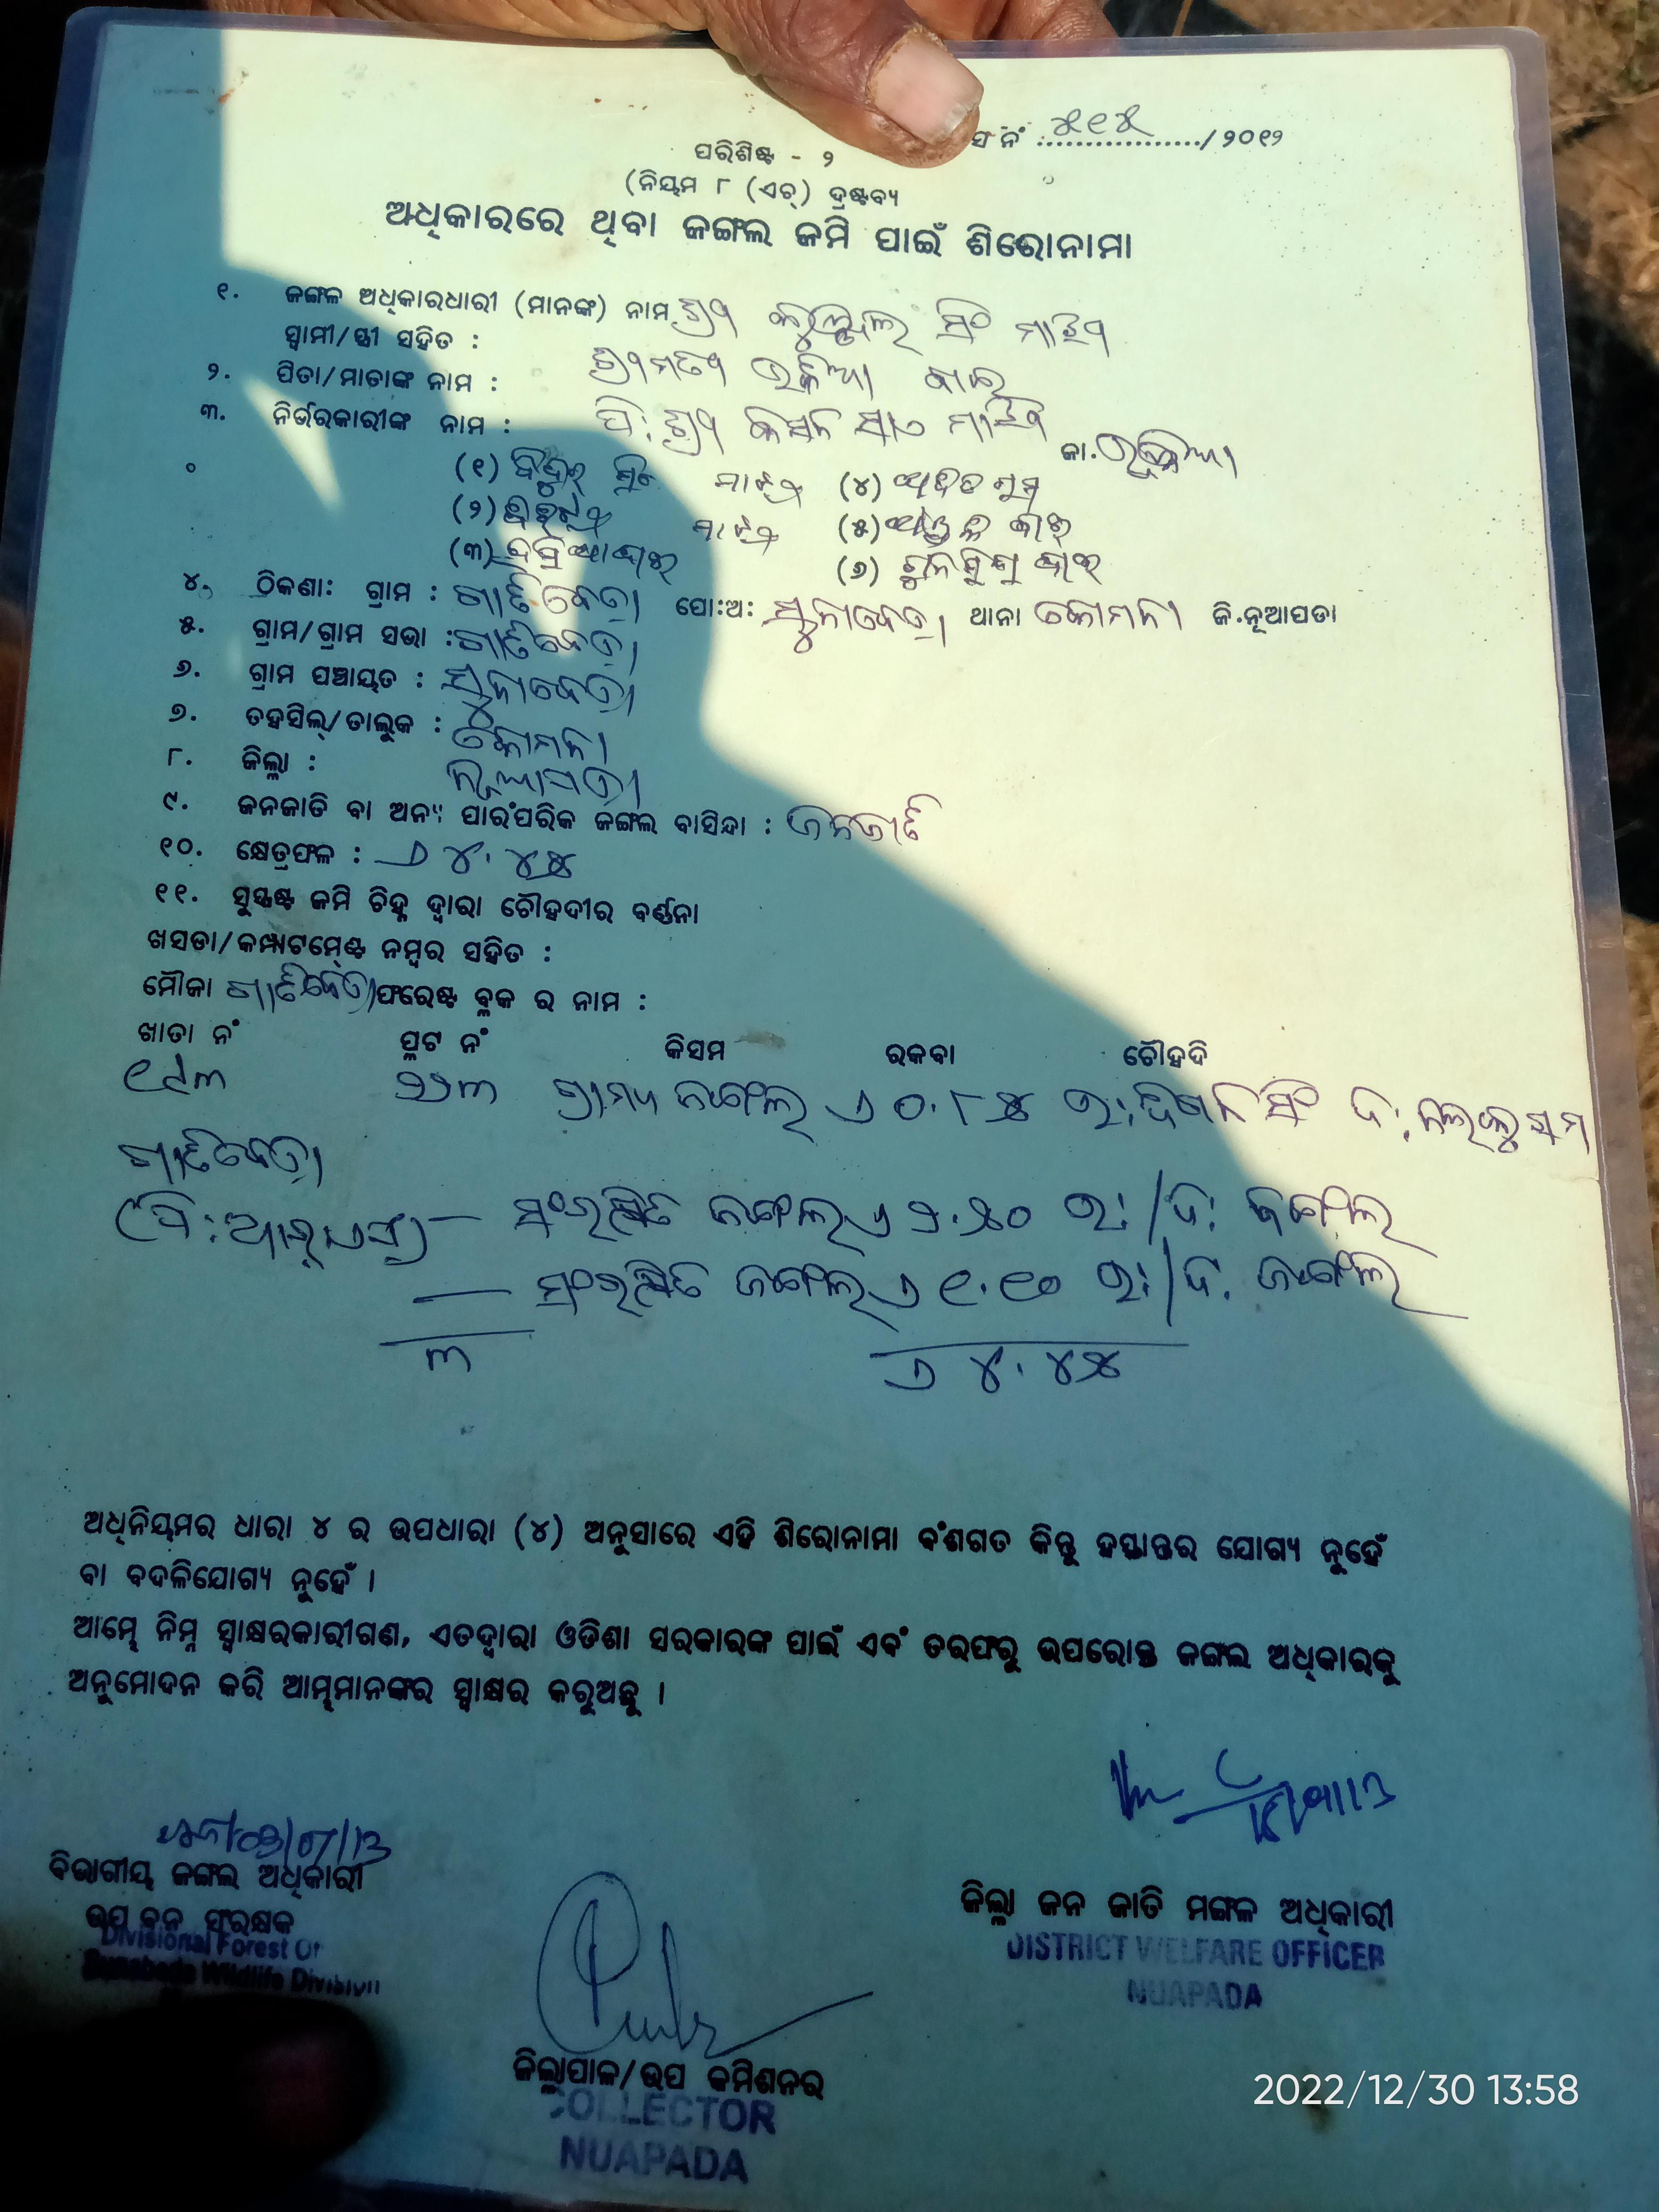 ସ ନଂ ୫୧୫/୨୦୧୨
ପରିଶିଷ୍ଟ - ୨
(ନିୟମ ୮ (ଏଚ୍) ଦ୍ରଷ୍ଟବ୍ୟ
ଅଧିକାରରେ ଥିବା ଜଙ୍ଗଲ ଜମି ପାଇଁ ଶିରୋନାମା
୧. ଜଙ୍ଗଳ ଅଧିକାରଧାରୀ (ମାନଙ୍କ) ନାମ ଶ୍ରୀ ସିଂ ମାଝି
ସ୍ଵାମୀ/ସ୍ତ୍ରୀ ସହିତ : ଶ୍ରୀମତୀ
୨. ପିତା/ମାତାଙ୍କ ନାମ : ପି: ଶ୍ରୀ ମାଝି
୩. ନିର୍ଭରକାରୀଙ୍କ ନାମ : ଜା.
(୧) ସିଂ ମାଝି (୪)
(୨) ମାଝି (୫)
(୩) (୬)
୪. ଠିକଣା: ଗ୍ରାମ : ଗାତିବେଡ଼ା ପୋ:ଅ: ସୁନାବେଡ଼ା ଥାନା କୋମନା ଜି.ନୂଆପଡା
୫. ଗ୍ରାମ/ଗ୍ରାମ ସଭା : ଗାତିବେଡ଼ା
୬. ଗ୍ରାମ ପଞ୍ଚାୟତ : ସୁନାବେଡ଼ା
୭. ତହସିଲ୍/ତାଲୁକ : କୋମନା
୮. ଜିଲ୍ଳା : ନୂଆପଡ଼ା
୯. ଜନଜାତି ବା ଅନ୍ୟ ପାରଂପରିକ ଜଙ୍ଗଲ ବାସିନ୍ଦା : ଜନଜାତି
୧୦. କ୍ଷେତ୍ରଫଳ : ଏ ୪.୪୫
୧୧. ସୁସ୍ପଷ୍ଟ ଜମି ଚିହ୍ନ ଦ୍ଵାରା ଚୌହଦୀର ବର୍ଣ୍ଣନା
ଖସଡା/କମ୍ପାଟମେଣ୍ଟ ନମ୍ବର ସହିତ :
ମୌଜା ଗାତିବେଡ଼ା ଫରେଷ୍ଟ ବ୍ଳକ ର ନାମ :
ଖାତା ନଂ ପ୍ଲଟ ନଂ କିସମ ରକବା ଚୌହଦି
୨୨୩ ଗ୍ରାମ୍ୟ ଜଙ୍ଗଲ ଏ ୦.୮୫ ଉ: ସିଂ ଦ:
ଗାତିବେଡ଼ା
(ପି:ଆର୍ଏସ୍) — ସଂରକ୍ଷିତ ଜଙ୍ଗଲ ଏ ୨.୫୦ ଉ:/ଦ: ଜଙ୍ଗଲ
— ସଂରକ୍ଷିତ ଜଙ୍ଗଲ ଏ ୧.୧୦ ଉ:/ଦ: ଜଙ୍ଗଲ
୩ ଏ ୪.୪୫
ଅଧିନିୟମର ଧାରା ୪ ର ଉପଧାରା (୪) ଅନୁସାରେ ଏହି ଶିରୋନାମା ବଂଶଗତ କିନ୍ତୁ ହସ୍ତାନ୍ତର ଯୋଗ୍ୟ ନୁହେଁ
ବା ବଦଳିଯୋଗ୍ୟ ନୁହେଁ ।
ଆମ୍ଭେ ନିମ୍ନ ସ୍ଵାକ୍ଷରକାରୀଗଣ, ଏତଦ୍ୱାରା ଓଡିଶା ସରକାରଙ୍କ ପାଇଁ ଏବଂ ତରଫରୁ ଉପରୋକ୍ତ ଜଙ୍ଗଲ ଅଧିକାରକୁ
ଅନୁମୋଦନ କରି ଆମ୍ଭମାନଙ୍କର ସ୍ଵାକ୍ଷର କରୁଅଛୁ ।
ବିଭାଗୀୟ ଜଙ୍ଗଲ ଅଧିକାରୀ
ଉପ ବନ ସଂରକ୍ଷକ
Divisional Forest Of
Sunabeda Wildlife Division
ଜିଲ୍ଲା ଜନ ଜାତି ମଙ୍ଗଳ ଅଧିକାରୀ
DISTRICT WELFARE OFFICER
NUAPADA
ଜିଲ୍ଲାପାଳ/ଉପ କମିଶନର
COLLECTOR
NUAPADA
2022/12/30 13:58